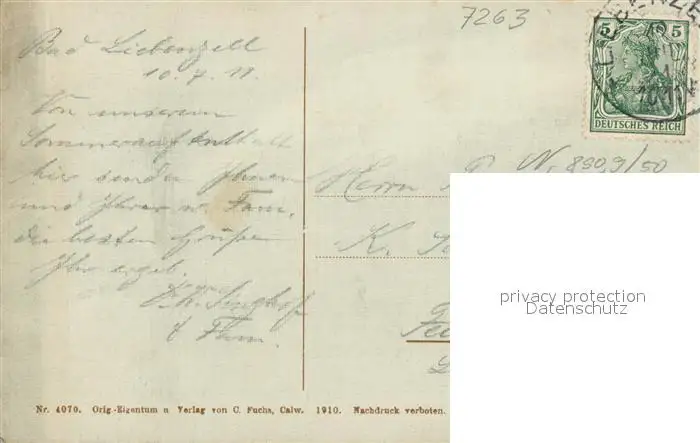 7263
Bad Liebenzell
10.7.11.
Von unserem
Sommeraufenthalt
hier senden Ihnen
und Ihrer w. Fam.
die besten Grüße
Ihr ergeb.
& Fam.
5 5
DEUTSCHES REICH
N. 890,9/50
Herrn
K.
privacy protection
Datenschutz
Nr. 4070. Orig.-Eigentum u Verlag von C. Fuchs, Calw. 1910. Nachdruck verboten.